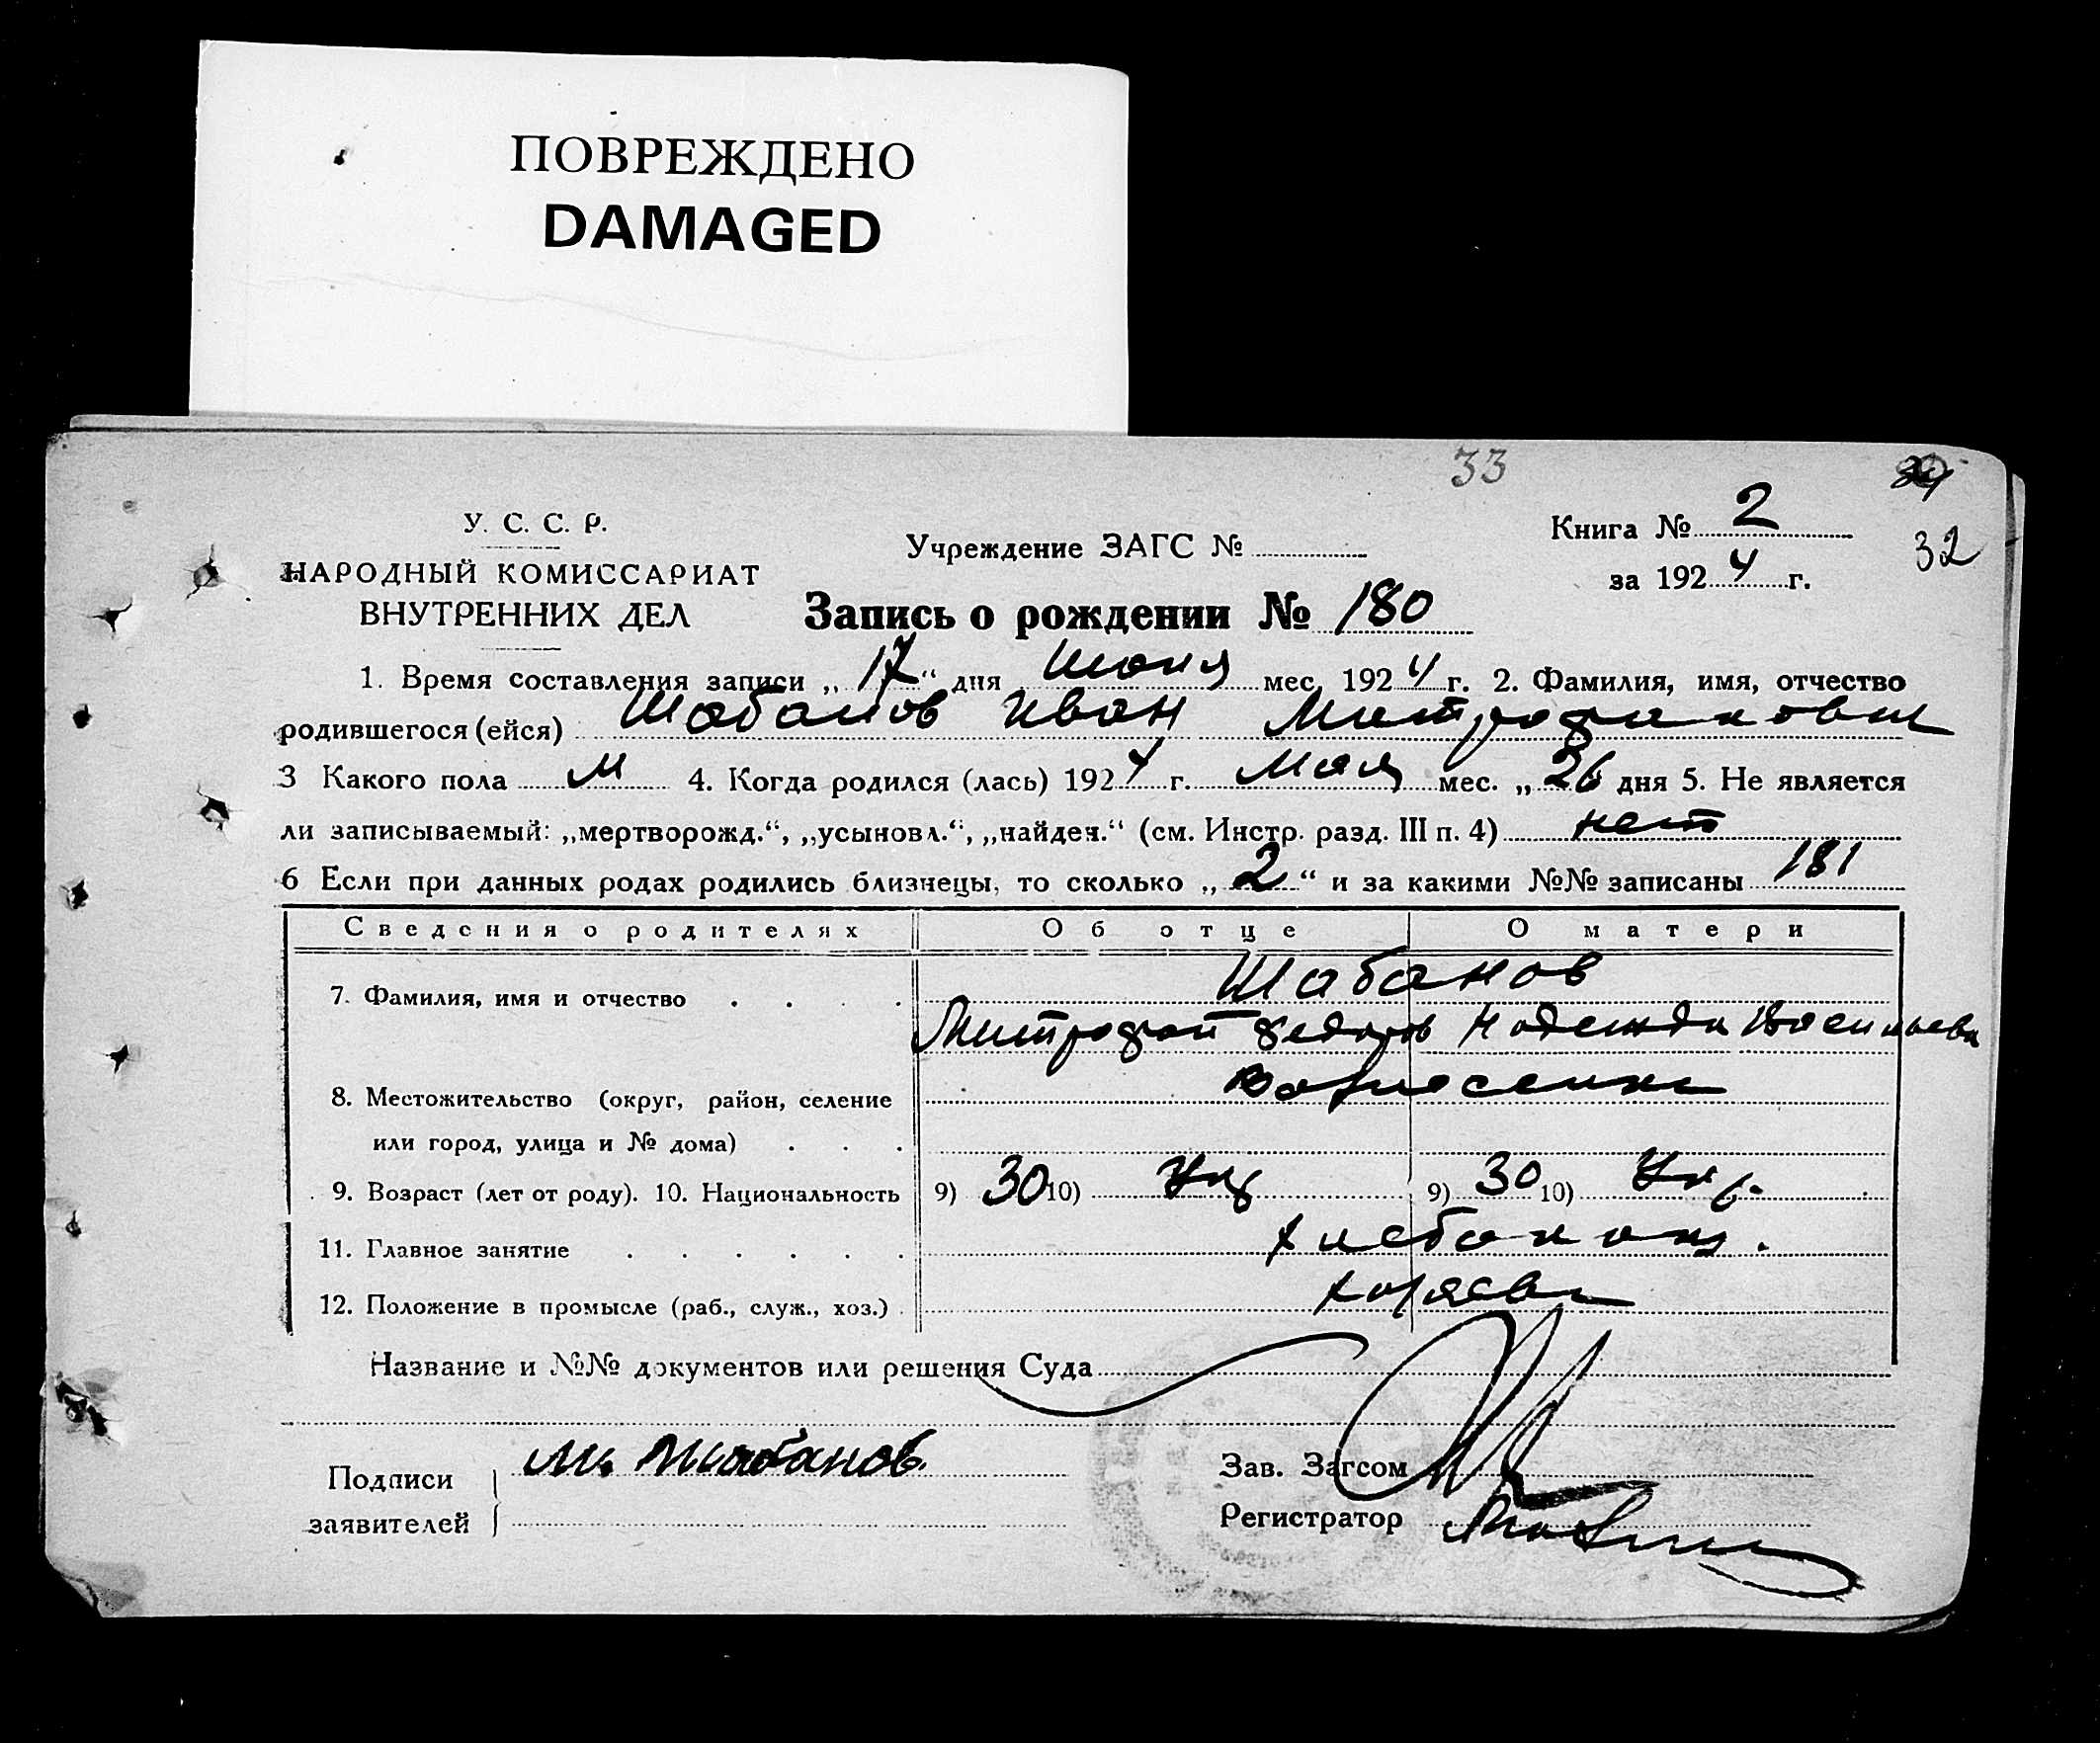 ПОВРЕЖДЕНО
DAMAGED
33
32
У. С. С. Р.
НАРОДНЫЙ КОМИССАРИАТ
ВНУТРЕННИХ ДЕЛ
Учреждение ЗАГС №
Книга № 2
за 1924 г.
Запись о рождении № 180
1. Время составления записи „17“ дня Июня мес. 1924 г. 2. Фамилия, имя, отчество
родившегося (ейся) Шабанов Иван Митрофанович
3 Какого пола м 4. Когда родился (лась) 1924 г. Мая мес. „26 дня 5. Не является
ли записываемый: „мертворожд.“, „усыновл.“, „найден.“ (см. Инстр. разд. III п. 4) нет
6 Если при данных родах родились близнецы, то сколько „2“ и за какими №№ записаны 181
Сведения о родителях Об отце О матери
7. Фамилия, имя и отчество Шабанов
Митрофан Федоров Надежда Васильева
8. Местожительство (округ, район, селение
или город, улица и № дома)
9. Возраст (лет от роду). 10. Национальность 9) 30 10) Укр 9) 30 10) Укр.
11. Главное занятие
12. Положение в промысле (раб., служ., хоз.) хозяева
Название и №№ документов или решения Суда
Подписи заявителей М. Шабанов.
Зав. Загсом
Регистратор